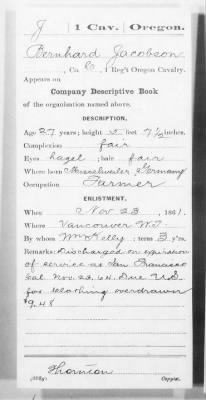 J 1 Cav. Oregon.
Bernhard Jacobson
, Co. C, 1 Reg't Oregon Cavalry.
Appears on
Company Descriptive Book
of the organization named above.
DESCRIPTION.
Age 27 years; height 5 feet 7½ inches.
Complexion fair
Eyes hazel; hair fair
Where born Germany
Occupation Farmer
ENLISTMENT.
When Nov 23, 1861.
Where Vancouver W.T.
By whom Wm Kelly; term 3 y'rs.
Remarks: Discharged on expiration
of service at San Francisco
Cal. Nov. 23, 64. Due U.S.
for clothing overdrawn
$9.48
Thornton
Copyist.